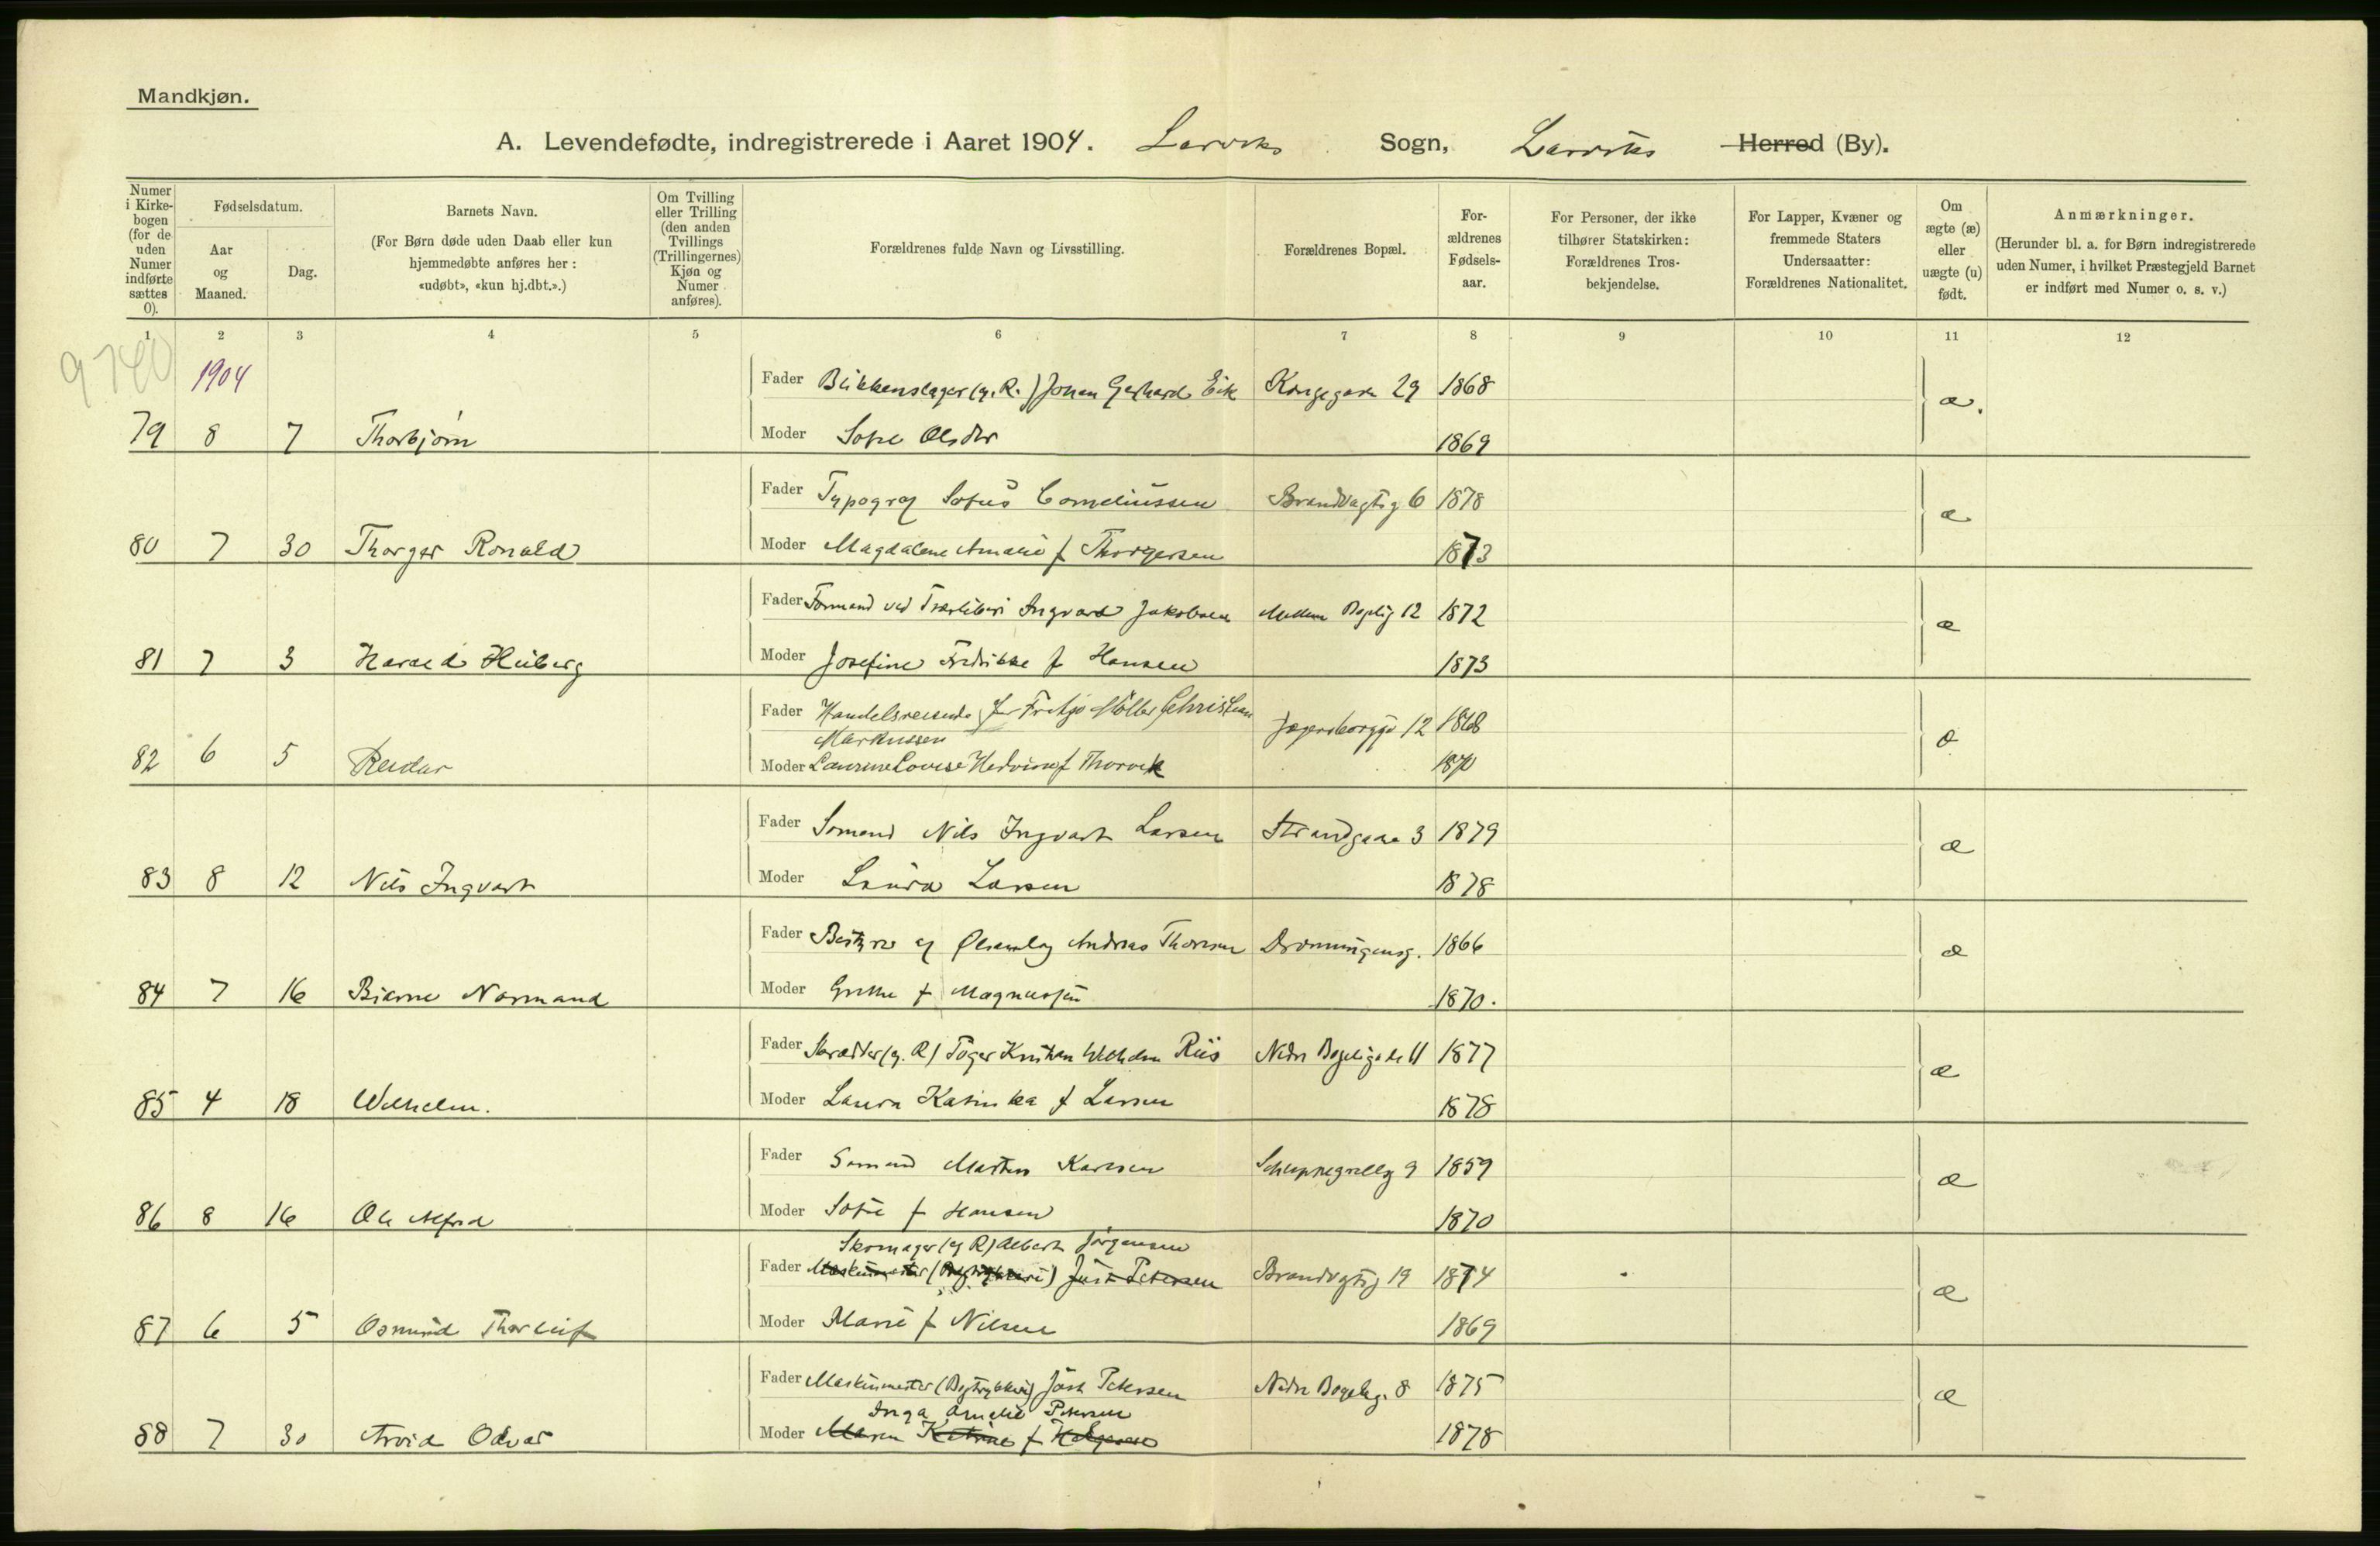 Mandkjøn.
A. Levendefødte, indregistrerede i Aaret 1904. Larviks Sogn, Larviks Herred (By).
Numer i Kirkebogen (for de uden Numer indførte sættes 0).
Fødselsdatum.
Aar og Maaned.
Dag.
Barnets Navn.
(For Børn døde uden Daab eller kun hjemmedøbte anføres her: «udøbt», «kun hj.dbt.».)
Om Tvilling eller Trilling (den anden Tvillings (Trillingernes) Kjøn og Numer anføres).
Forældrenes fulde Navn og Livsstilling.
Forældrenes Bopæl.
Forældrenes Fødselsaar.
For Personer, der ikke tilhører Statskirken: Forældrenes Trosbekjendelse.
For Lapper, Kvæner og fremmede Staters Undersaatter: Forældrenes Nationalitet.
Om ægte (æ) eller uægte (u) født.
Anmærkninger.
(Herunder bl. a. for Børn indregistrerede uden Numer, i hvilket Præstegjeld Barnet er indført med Numer o. s. v.)
1 2 3 4 5 6 7 8 9 10 11 12
9740
1904
Fader Blikkenslager (eg. R.) Johan Gerhard Eik Kongegaden 29 1868 æ.
79 8 7 Thorbjørn Moder Sofie Olsdtr 1869
Fader Typograf Sofus Corneliussen Brandvagtsg 6 1878 æ
80 7 30 Thorger Ronald Moder Magdalene Amalie f Thorgersen 1873
Fader Formand ved Træsliberi Ingvard Jakobsen Mellem Bøgelig 12 1872 æ
81 7 3 Harald Heiberg Moder Josefine Fredrikke f Hansen 1873
Fader Handelsreisende Fritjof Møller Christian Jegersborggd 12 1868 æ
Markussen
82 6 5 Reidar Moder Laurine Lovise f 1870
Fader Sømand Nils Ingvart Larsen Strandgade 3 1879 æ
83 8 12 Nils Ingvart Moder Laura Larsen 1878
Fader Bestyrer af Ølsamlag Andreas Thoresen Dronningensg. 1866 æ
84 7 16 Bjarne Normand Moder Grethe f Magnussen 1870.
Fader Skrædder (eg. R) Kristian Wilhelm Riis Nedre Bøgeligade 11 1877 æ
85 4 18 Wilhelm. Moder Laura Katinka f Larsen 1878
Fader Sømand Martin Karlsen Schuppegrellsg 9 1859 æ
86 8 16 Ole Alfred Moder Sofie f Hansen 1870
Skomager (eg R) Albert Jørgensen
Fader Maskinmester (Bogtrykkeri) Just Petersen Brandvgtsg 19 1874 æ
87 6 5 Osmund Thorleif Moder Marie f Nilsen 1869
Fader Maskinmester (Bogtrykkeri) Just Petersen Nedre Bøgelig. 8 1875 æ
Inga Amalie Petersen
88 7 30 Arvid Odvar Moder Maren Katrine f Helgesen 1878